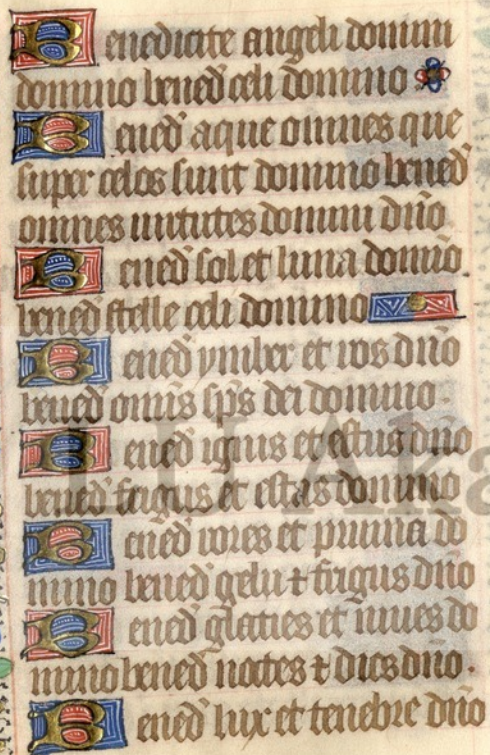 Benedicite angeli domini
domino bened celi domino
Bened aque omnes que
super celos sunt domino bened
omnes uirtutes domini dño
Bened sol et luna domĩo
bened stelle celi domino
Bened ymber et ros dño
bened omĩs sp̃s dei domino
Bened ignis et estus dño
bened frigus et estas domino
Bened rores et pruina do
mino bened gelu ⁊ frigus dño
Bened glacies et niues do
mino bened noctes ⁊ dies dño.
Bened lux et tenebre dño
LU Aka